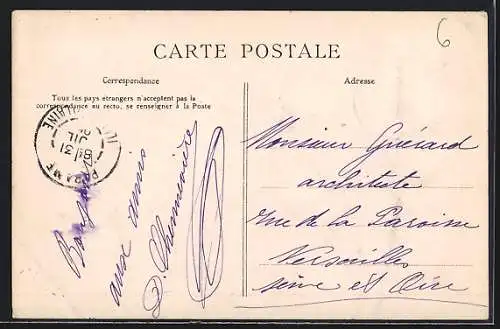 6
CARTE POSTALE
Correspondance
Adresse
Tous les pays étrangers n'acceptent pas la
correspondance au recto, se renseigner à la Poste
PARAMÉ
31
JIL
Bonjour
aux amis
Monsieur Guérard
architecte
rue de la Paroisse
Versailles
Seine et Oise